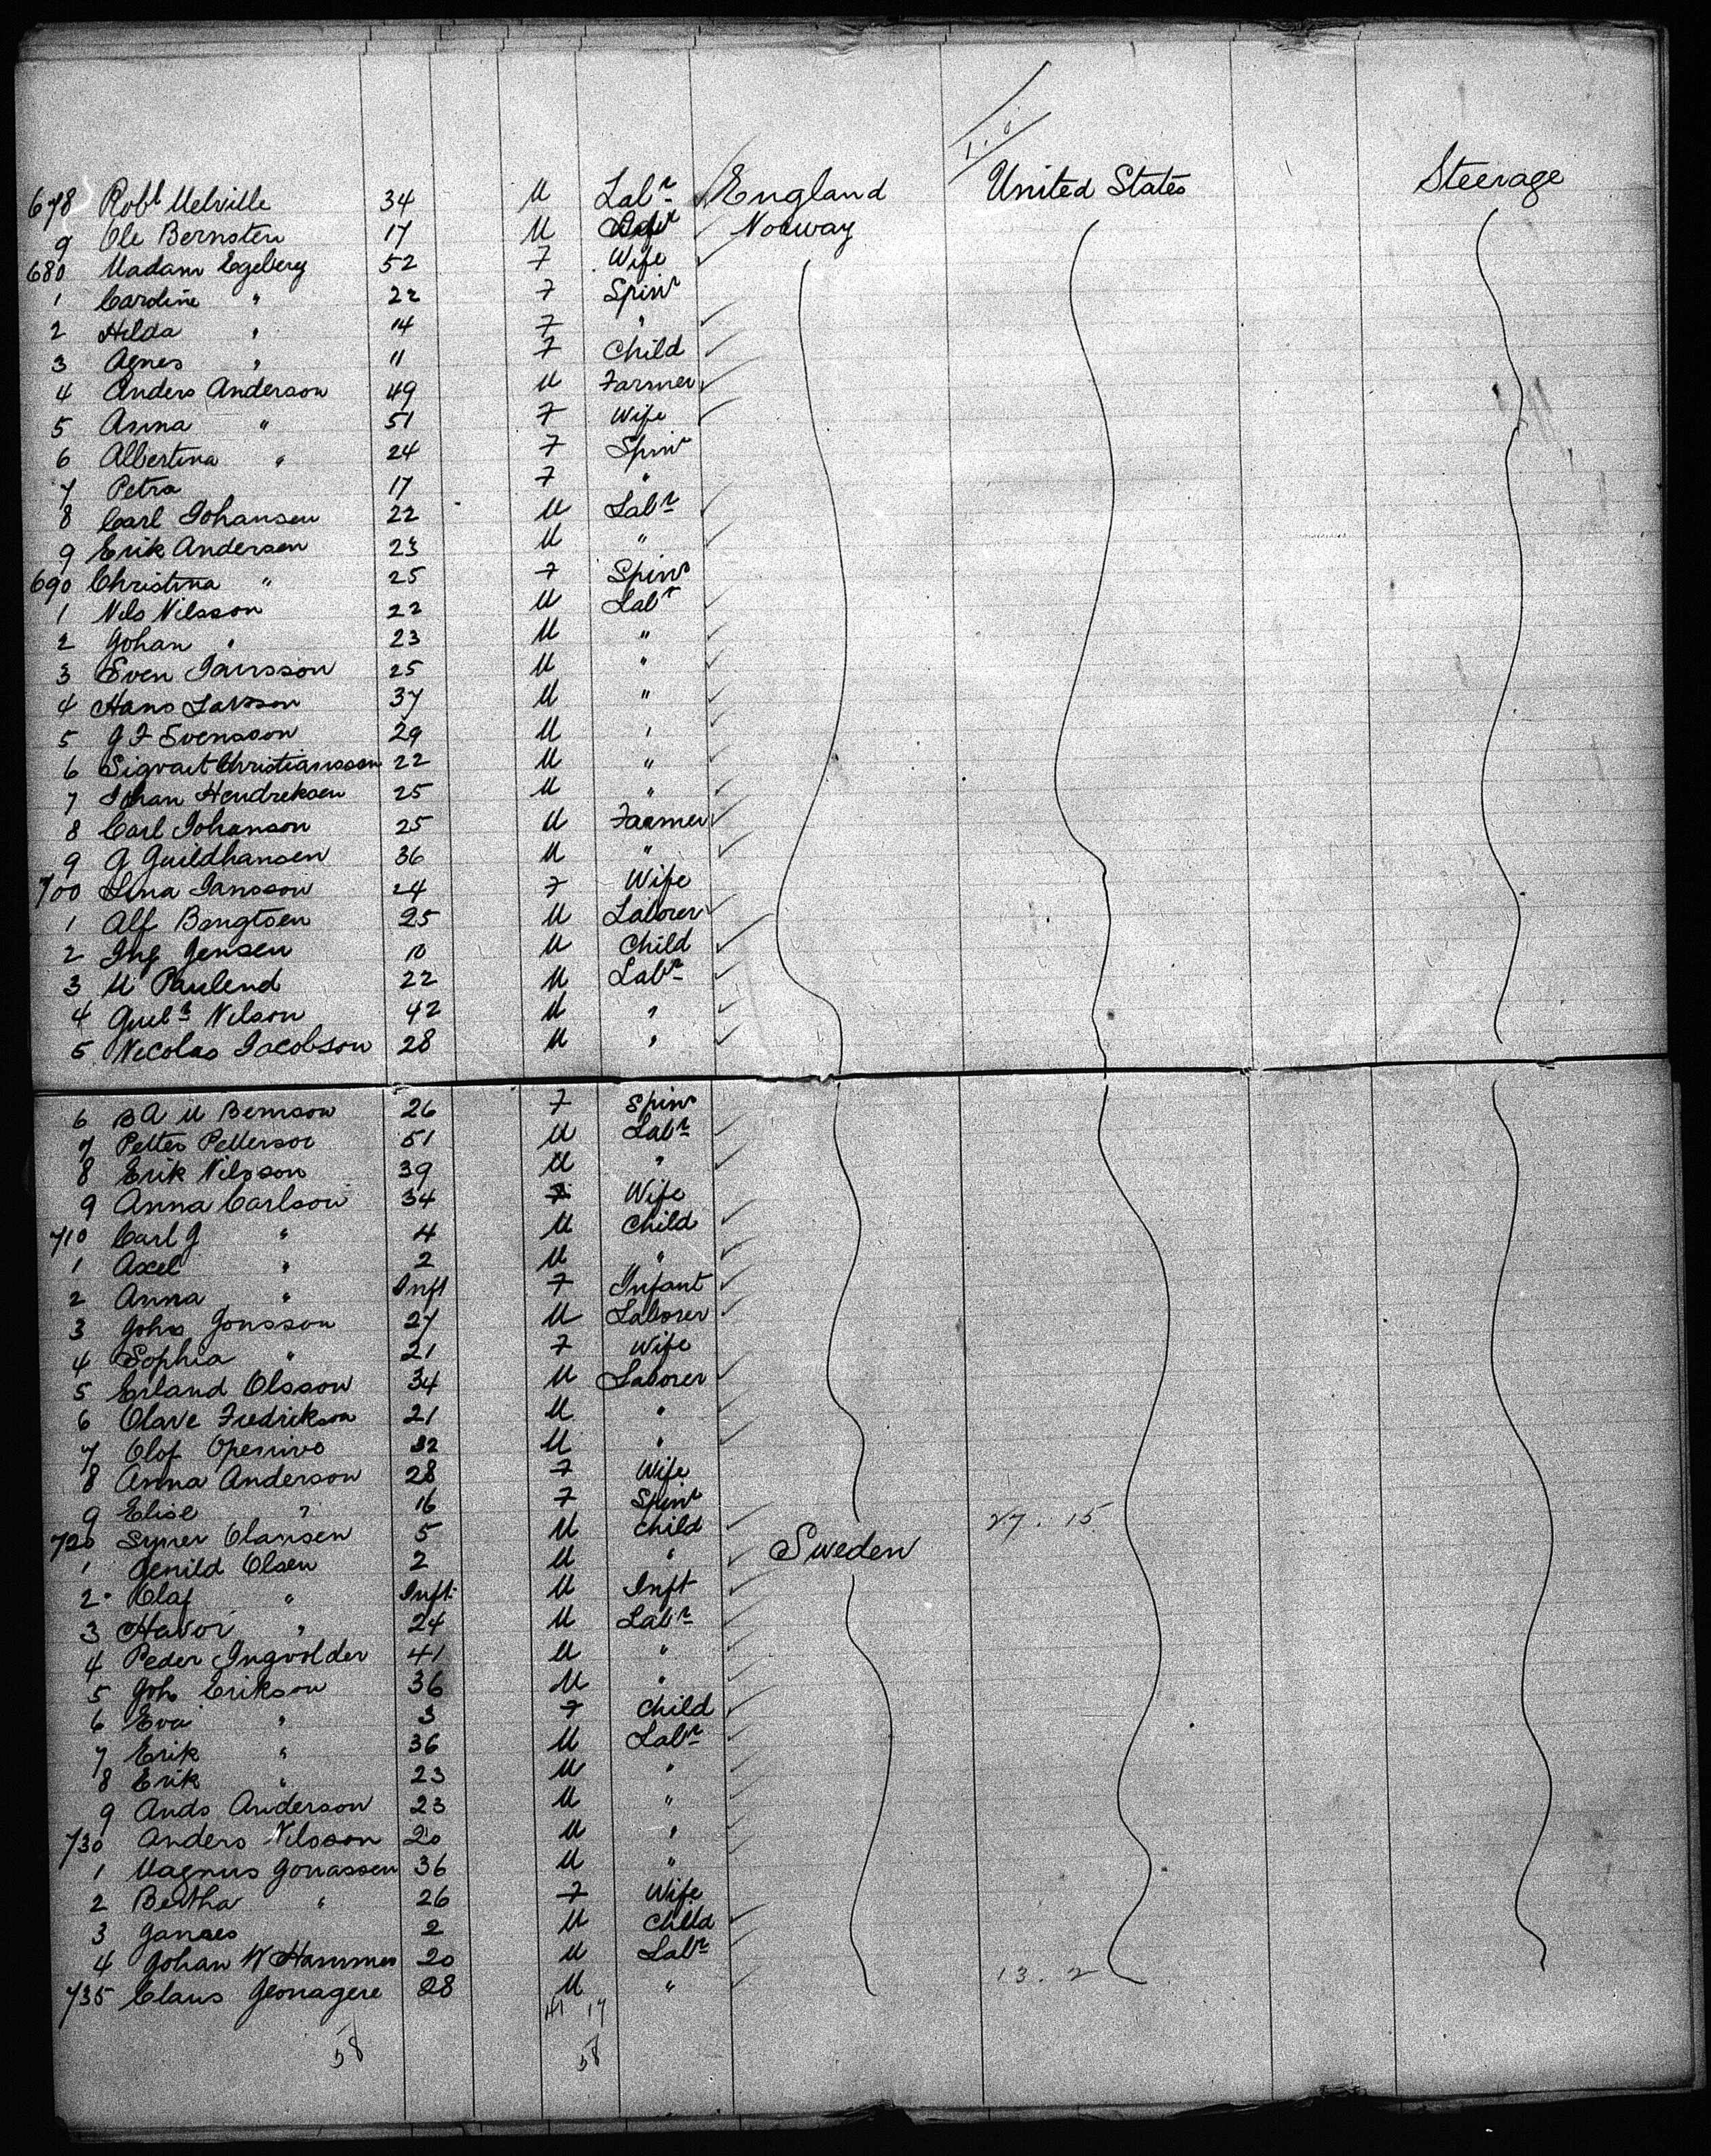 678 Robt Melville 34 M Labr England United States Steerage
9 Ole Bernsten 17 M Norway
680 Madam Egeberg 52 F Wife
1 Cardine " 22 F Spinr
2 Hilda " 14 F "
3 Agnes " 11 F Child
4 Anders Anderson 49 M Farmer
5 Anna " 51 F Wife
6 Albertina " 24 F Spinr
7 Petra 17 F "
8 Carl Johansen 22 M Labr
9 Erik Andersen 23 M "
690 Christina " 25 F Spinr
1 Nels Nilsson 22 M Labr
2 Johan " 23 M "
3 Sven Jansson 25 M "
4 Hans Larsson 37 M "
5 J F Svensson 29 M "
6 Sigvart Christiansson 22 M "
7 Johan Hendreksen 25 M "
8 Carl Johanson 25 M Farmer
9 A Guildhansen 36 M "
700 Lina Jansson 24 F Wife
1 Alf Bangtsen 25 M Laborer
2 Ing Jensen 10 M Child
3 M Paulend 22 M Labr
4 Nilson 42 M "
5 Necolas Jacobson 28 M "
6 B A M Bernson 26 F Spinr
7 Petter Petterson 51 M Labr
8 Erik Nilsson 39 M "
9 Anna Carlson 34 F Wife
710 Carl J " 4 M Child
1 Axel " 2 M "
2 Anna " Inft F Infant
3 Johs Jonsson 27 M Laborer
4 Sophia " 21 F Wife
5 Erland Olsson 34 M Laborer
6 Olave Fredrikson 21 M "
7 Olof 32 M "
8 Anna Anderson 28 F Wife
9 Elise " 16 F Spinr
720 Syner Olansen 5 M Child 27. 15
1 Genild Olsen 2 M " Sweden
2 Olaf " Inft M Inft
3 Havor " 24 M Labr
4 Peder Ingvolder 41 M "
5 Joh Erikson 36 M "
6 Eva " 3 F Child
7 Erik " 36 M Labr
8 Erik " 23 M "
9 Ands Anderson 23 M "
730 Anders Nilsson 20 M "
1 Magnus Jonassen 36 M "
2 Bertha " 26 F Wife
3 2 M Child
4 Johan W Hammer 20 M Labr
735 Claus 28 M " 13. 2
41 17
58 58